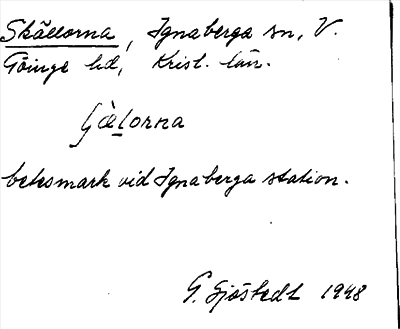 Skällorna, Ignaberga sn, V.
Göinge hd, Krist. län.
betesmark vid Ignaberga station.
G. Sjöstedt 1948